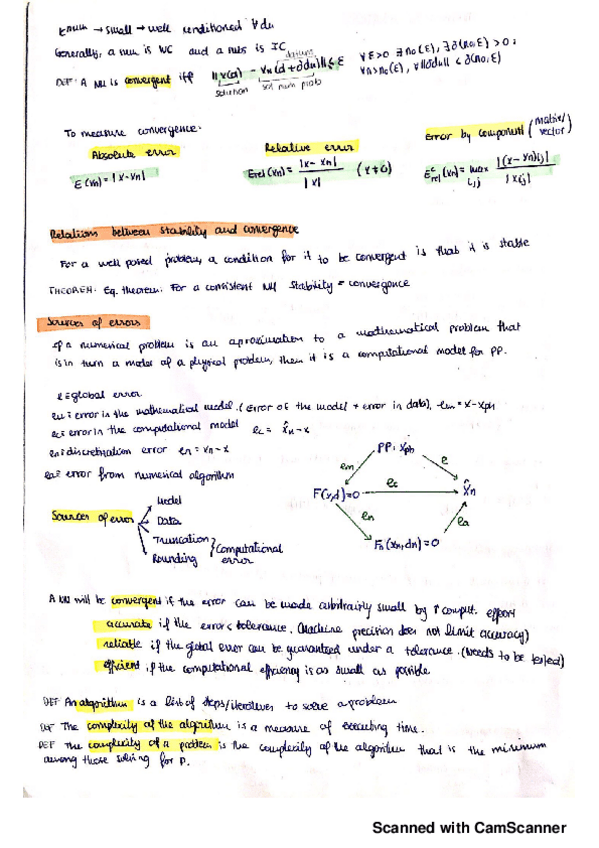 Knum → small → well conditioned ∀dn
Generally, a num is WC and a nubs is IC
DEF: A NM is convergent iff ||x(d) - xn(d+δdn)|| ≤ ε ∀ε>0 ∃n0(ε), ∃δ(n0,ε)>0:
∀n>n0(ε), ∀||δdn|| < δ(n0,ε)
solution sol num prob
To measure convergence:
Absolute error Relative error Error by component (matrix/vector)
E(xn) = |x-xn| Erel(xn) = |x-xn| / |x| (x≠0) E^c rel(xn) = max i,j |(x-xn)ij| / |xij|
Relations between stability and convergence
For a well posed problem, a condition for it to be convergent is that it is stable
THEOREM: Eq. theorem: For a consistent NM stability = convergence
Sources of errors
If a numerical problem is an aproximation to a mathematical problem that
is in turn a model of a physical problem, then it is a computational model for PP.
e = global error
em = error in the mathematical model. (error of the model + error in data), em = x - xph
ec = error in the computational model ec = x̂n - x
en = discretization error en = xn - x
ea = error from numerical algorithm
PP: xph
em e
F(x,d)=0 ec x̂n
en ea
Fn(xn,dn)=0
Sources of error
Model
Data
Truncation
Rounding
} Computational error
A NM will be convergent if the error can be made arbitrarily small by ↑ comput. effort
accurate if the error < tolerance. (Machine precision does not limit accuracy)
reliable if the global error can be guaranteed under a tolerance. (needs to be tested)
efficient if the computational efficiency is as small as possible
DEF An algorithm is a list of steps/iterations to solve a problem
DEF The complexity of the algorithm is a measure of executing time.
DEF The complexity of a problem is the complexity of the algorithm that is the minimum
among those solving for P.
Scanned with CamScanner